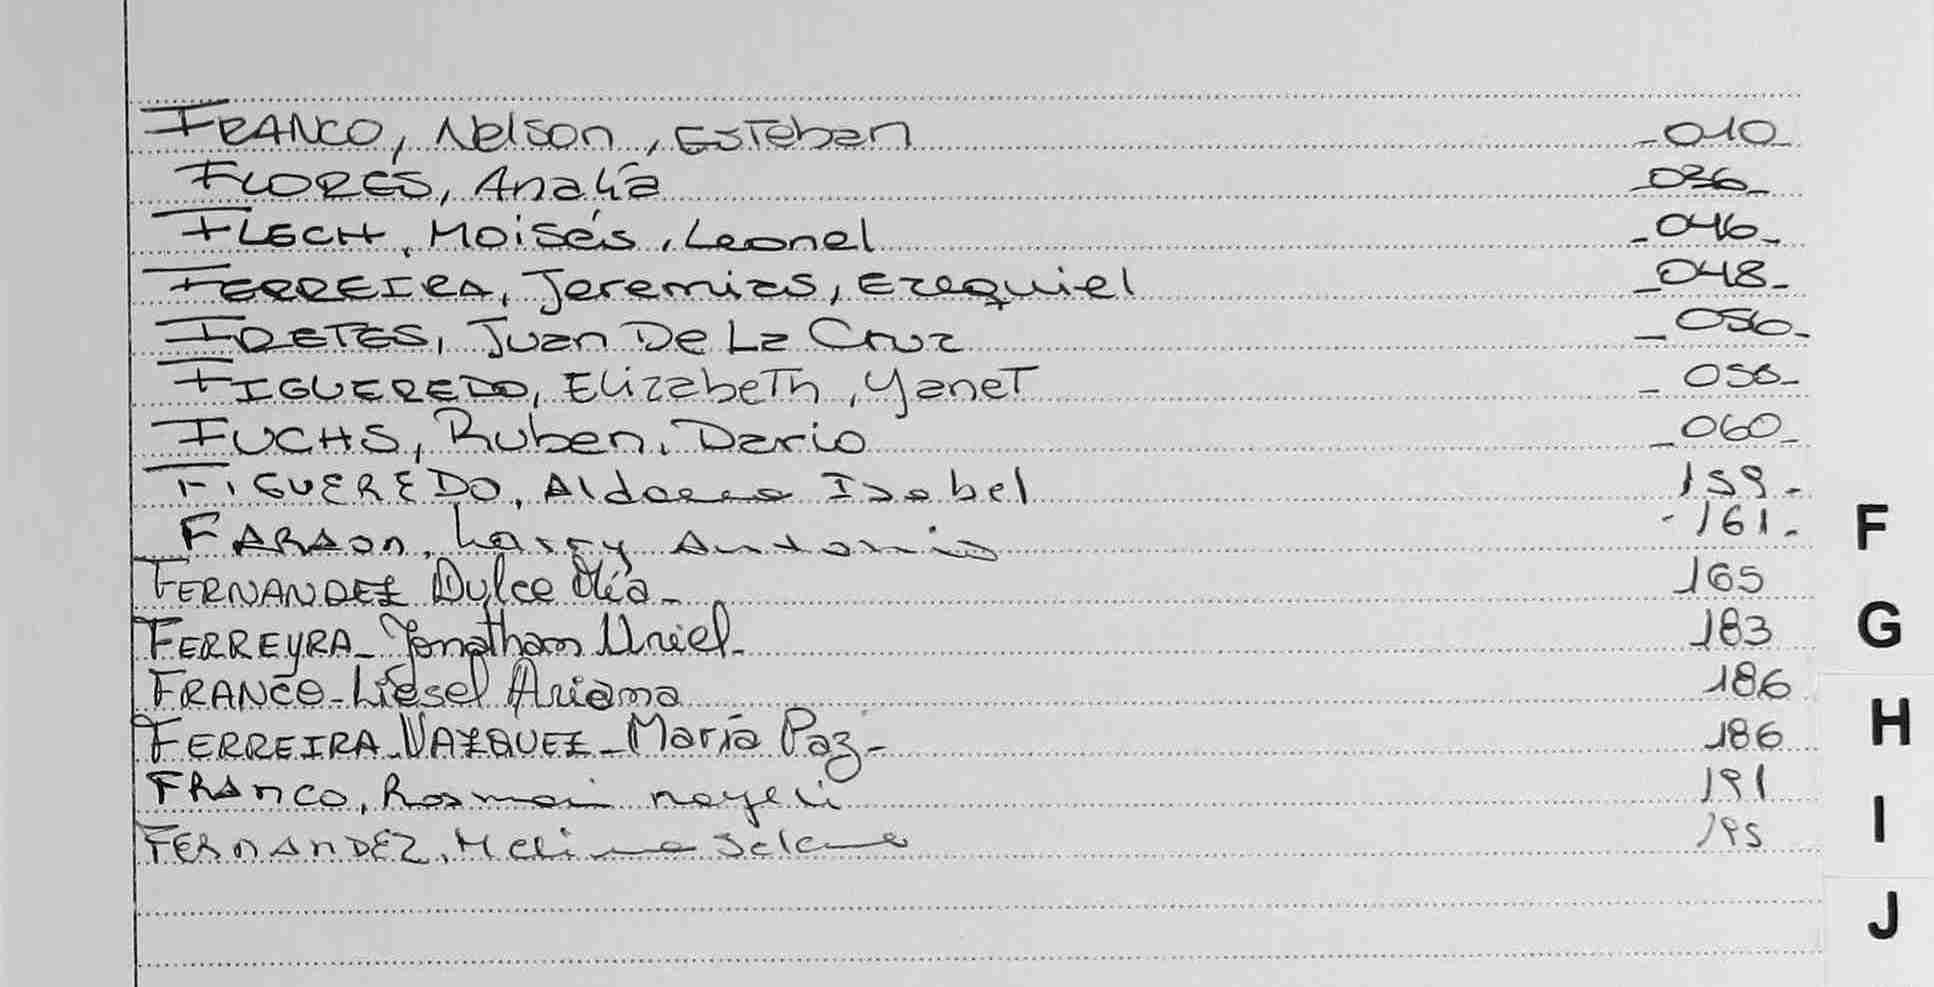 FRANCO, Nelson, Esteban _010_
FLORES, Analía _036_
FLECH, Moisés, Leonel _046_
FERREIRA, Jeremias, Ezequiel _048_
FRETES, Juan De La Cruz _056_
FIGUEREDO, Elizabeth, Yanet _058_
FUCHS, Ruben, Dario _060_
FIGUEREDO, Aldana Isabel 159-
FARAON, Larry Antonio -161-
FERNANDEZ Dulce Mía_ 165
FERREYRA_Jonathan Uriel_ 183
FRANCO_Liesel Ariana 186
FERREIRA_VAZQUEZ_María Paz_ 186
FRANCO, Rosmari nayeli 191
FERNANDEZ, Melina Selena 195
F
G
H
I
J